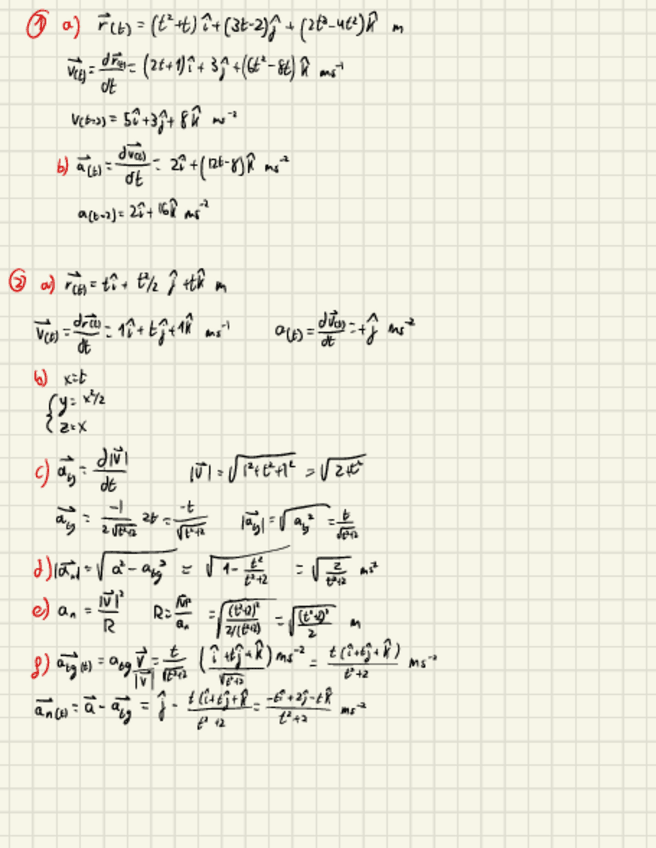 ① a) r⃗(t) = (t²+t) î + (3t-2) ĵ + (2t³-4t²) k̂ m
v⃗(t) = dr⃗(t)/dt = (2t+1) î + 3ĵ + (6t²-8t) k̂ ms⁻¹
v(t=2) = 5î + 3ĵ + 8k̂ ms⁻²
b) a⃗(t) = dv⃗(t)/dt = 2î + (12t-8) k̂ ms⁻²
a(t=2) = 2î + 16k̂ ms⁻²
② a) r⃗(t) = tî + t²/2 ĵ + tk̂ m
v⃗(t) = dr⃗(t)/dt = 1î + tĵ + 1k̂ ms⁻¹ a(t) = dv⃗(t)/dt = +ĵ ms⁻²
b) x=t
{ y = x²/2
z = x
c) a⃗tg = d|v⃗|/dt |v⃗| = √(1²+t²+1²) = √(2+t²)
a⃗tg = -1/(2√(t²+2)) 2t = -t/√(t²+2) |a⃗tg| = √(atg²) = t/√(t²+2)
d) |a⃗n| = √(a²-atg²) = √(1 - t²/(t²+2)) = √(2/(t²+2)) ms²
e) an = |v⃗|²/R R = |v|²/an = √((t²+2)²/(2/(t²+2))) = √((t²+2)³/2) m
f) a⃗tg(t) = atg v⃗/|v⃗| = t/√(t²+2) ((î+tĵ+k̂)/√(t²+2)) ms⁻² = t(î+tĵ+k̂)/(t²+2) ms⁻²
a⃗n(t) = a⃗ - a⃗tg = ĵ - t(î+tĵ+k̂)/(t²+2) = (-tî+2ĵ-tk̂)/(t²+2) ms⁻²